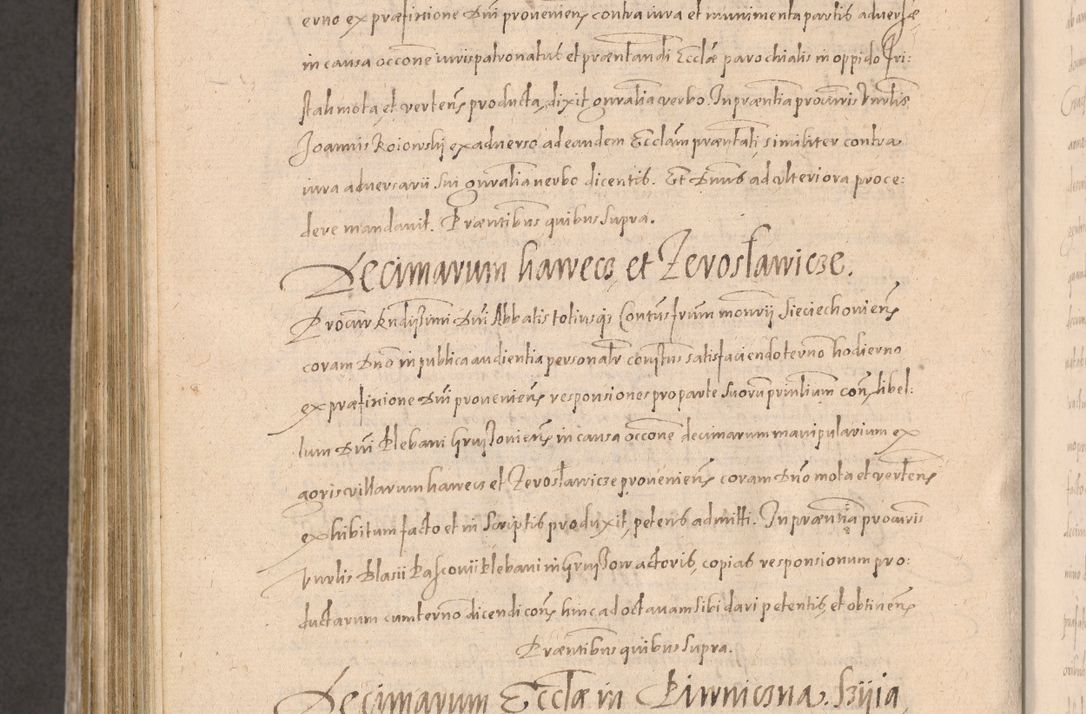 erno ex præfinione Dni provenien contra iura et munimenta partis adversæ
in causa occone iurispatronatus et præntandi Ecclæ parochialis in oppido Pri:
stah mota et verten producta, dixit gnralia verbo. In præntia procuris Vnrlis
Joannis Koiowskj ex adverso ad eandem Ecclam præntati similiter contra
iura adversarii sui gnralia verbo dicentis. Et Dnus ad vlteriora proce:
dere mandauit. Præntibus quibus supra.
Decimarum hawecz et Jerosławicze.
Procur Rndissimi Dni Abbatis totiusq Contus frum monrii Sieciechovien
coram Dno in publica audientia personalr constus satisfaciendo termo hodierno
ex præfinione Dni provenien responsiones pro parte suorum prinlium con libel:
lum Dni Plebani Grui Jovien in causa occone decimarum manipularium ex
agris villarum hawecz et Jerosławicze provenien coram Dno mota et verten
exhibitum facto et in scriptis produxit, petens admitti. In præntia procuris
Vnrlis Blasii Pasconii Plebani in Grui Jow actoris, copias responsionum pro:
ductarum cum termo dicendi con hinc ad octauam sibi dari petentis et obtinen
Præntibus quibus supra.
Decimarum Ecclæ in Piwniczna. Szyia,